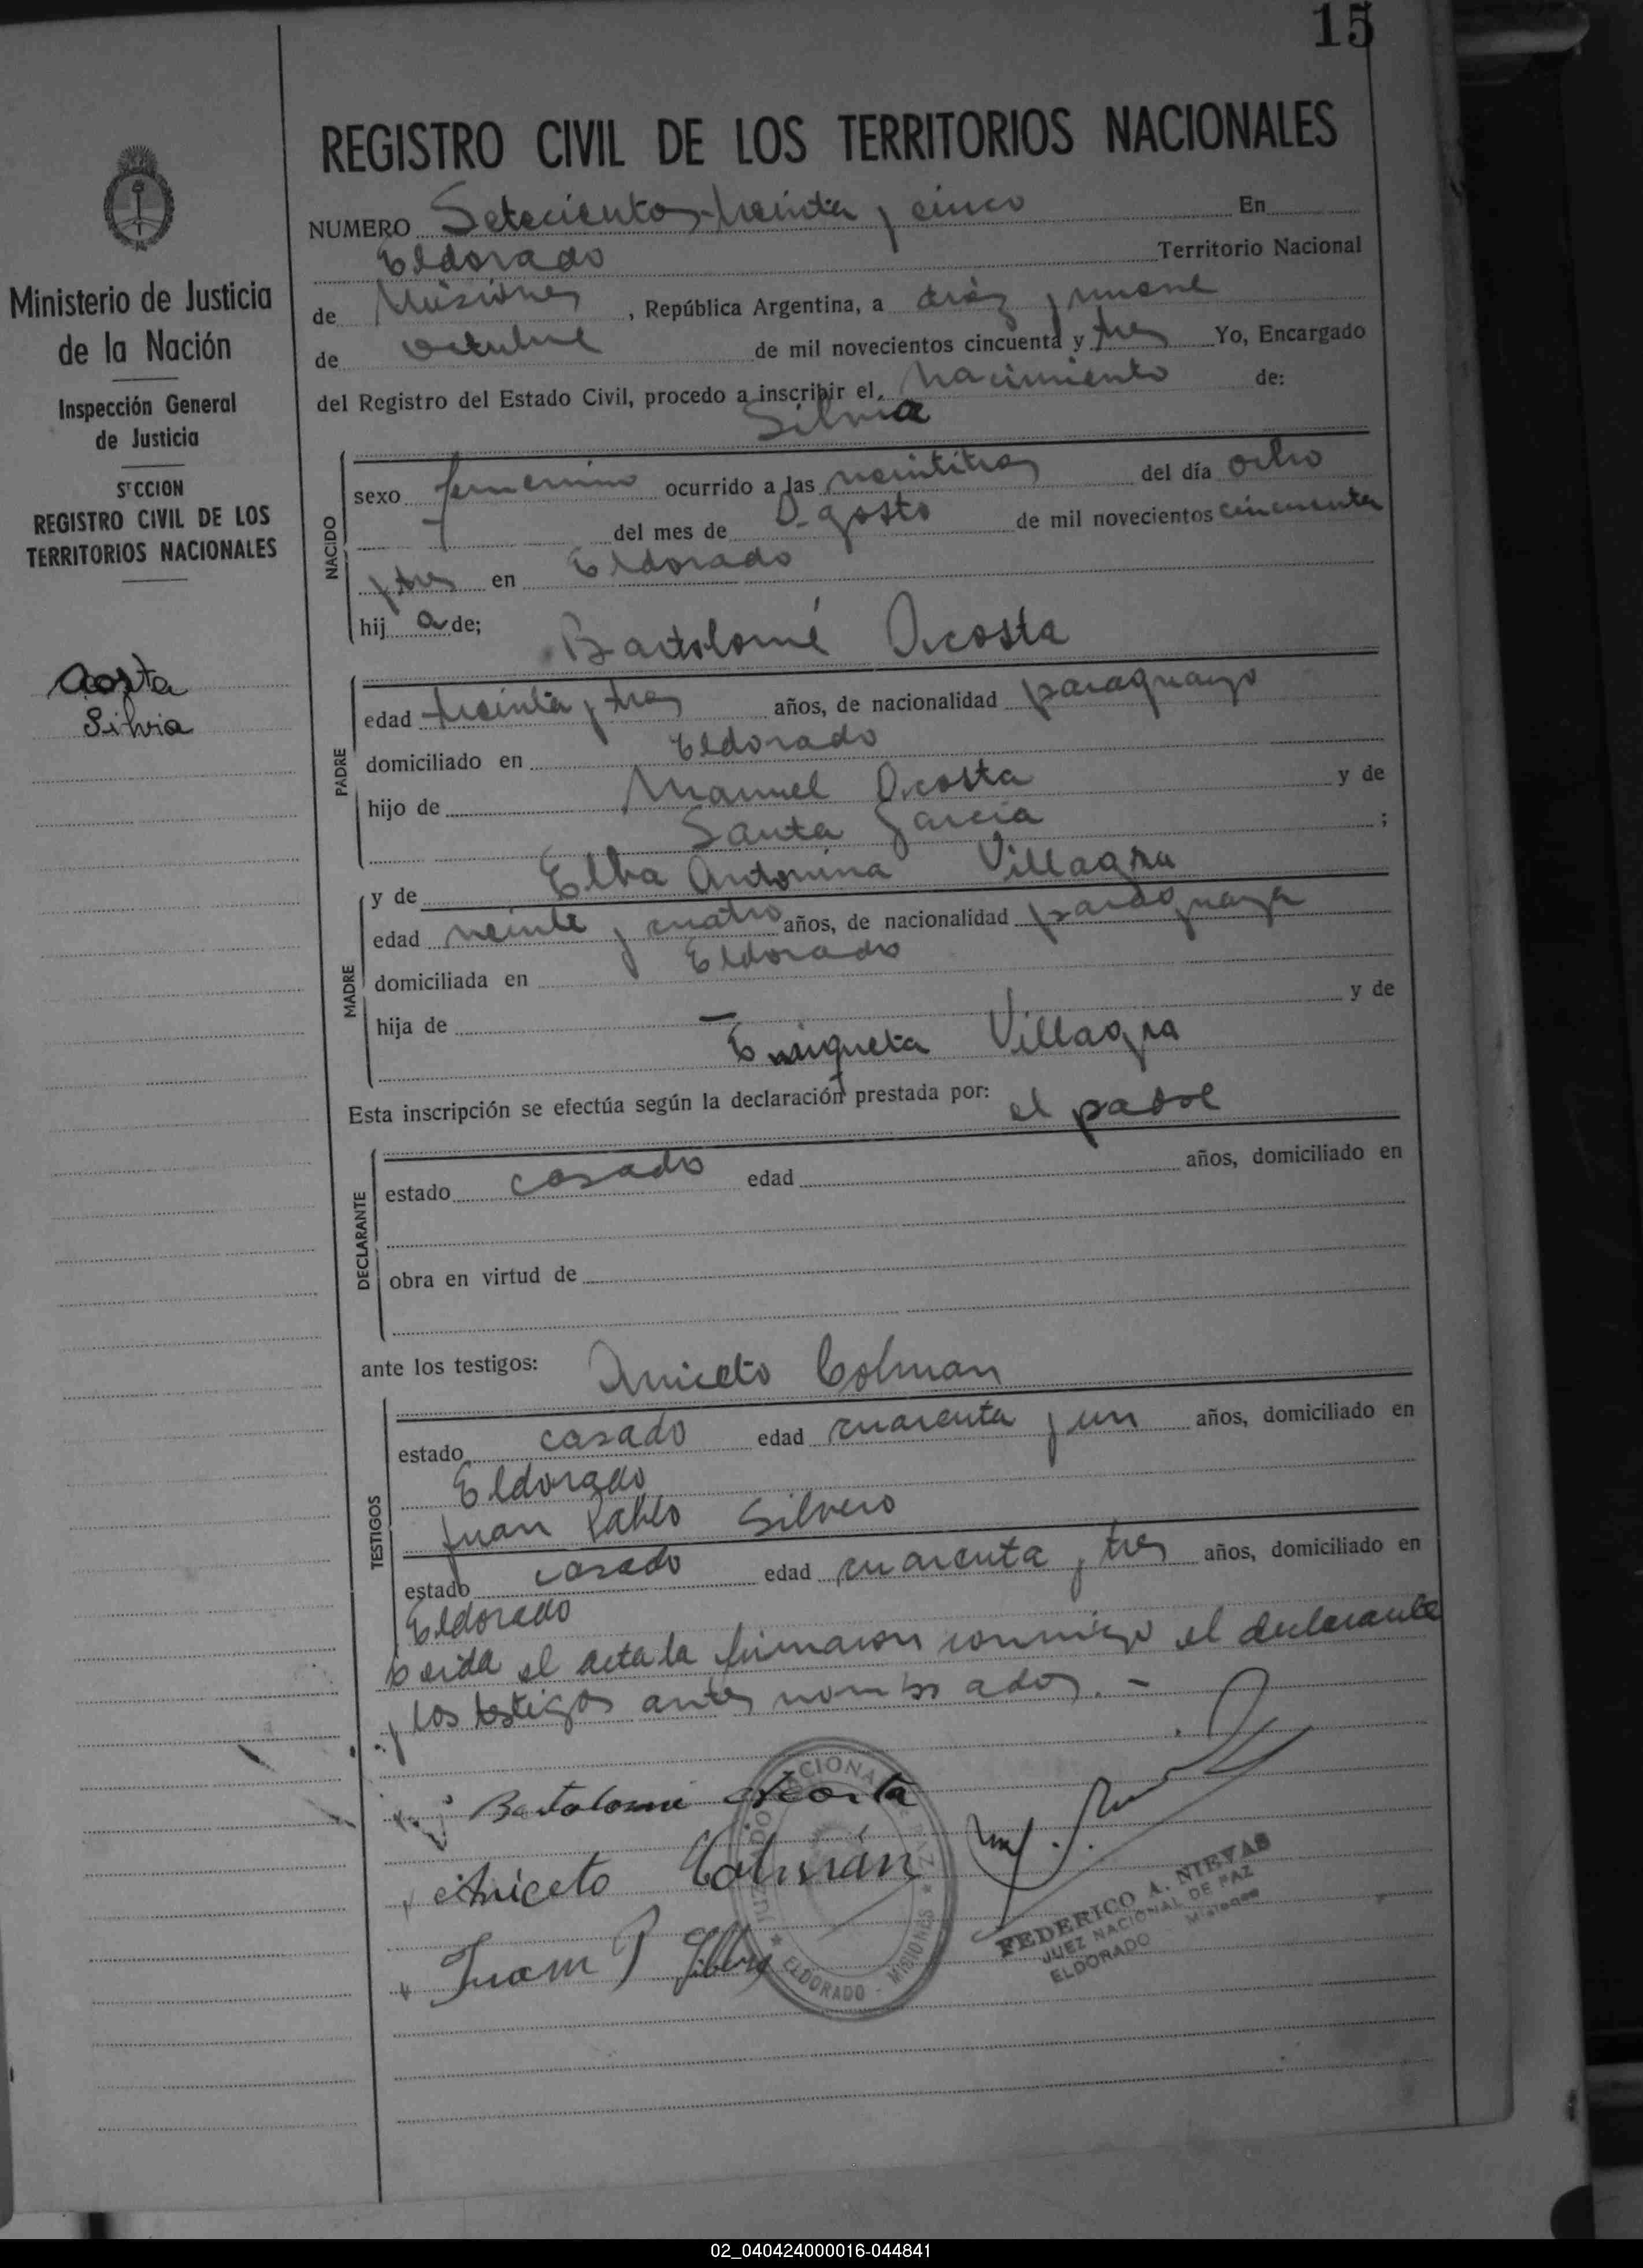 15
REGISTRO CIVIL DE LOS TERRITORIOS NACIONALES
NUMERO Setecientos treinta y cinco En
Eldorado Territorio Nacional
de Misiones, República Argentina, a diez y nueve
de octubre de mil novecientos cincuenta y tres Yo, Encargado
del Registro del Estado Civil, procedo a inscribir el nacimiento de:
Silvia
NACIDO
sexo femenino ocurrido a las veintitres del día ocho
del mes de Agosto de mil novecientos cincuenta
y tres en Eldorado
hij a de; Bartolomé Acosta
PADRE
edad treinta y tres años, de nacionalidad paraguayo
domiciliado en Eldorado
hijo de Manuel Acosta y de
Santa Garcia ;
MADRE
y de Elba Antonina Villagra
edad veinte y cuatro años, de nacionalidad paraguaya
domiciliada en Eldorado
hija de — y de
Enriqueta Villagra
Esta inscripción se efectúa según la declaración prestada por: el padre
DECLARANTE
estado casado edad años, domiciliado en
obra en virtud de
ante los testigos: Aniceto Colman
TESTIGOS
estado casado edad cuarenta y un años, domiciliado en
Eldorado
Juan Pablo Silvero
estado casado edad cuarenta y tres años, domiciliado en
Eldorado
Leida el acta la firmaron conmigo el declarante
y los testigos antes nombrados. -
Bartolome Acosta
Aniceto Colmán
Juan P Silvero
JUZGADO NACIONAL DE PAZ
ELDORADO - MISIONES
FEDERICO A. NIEVAS
JUEZ NACIONAL DE PAZ
ELDORADO Misiones
Ministerio de Justicia
de la Nación
Inspección General
de Justicia
SECCION
REGISTRO CIVIL DE LOS
TERRITORIOS NACIONALES
Acosta
Silvia
02_040424000016-044841